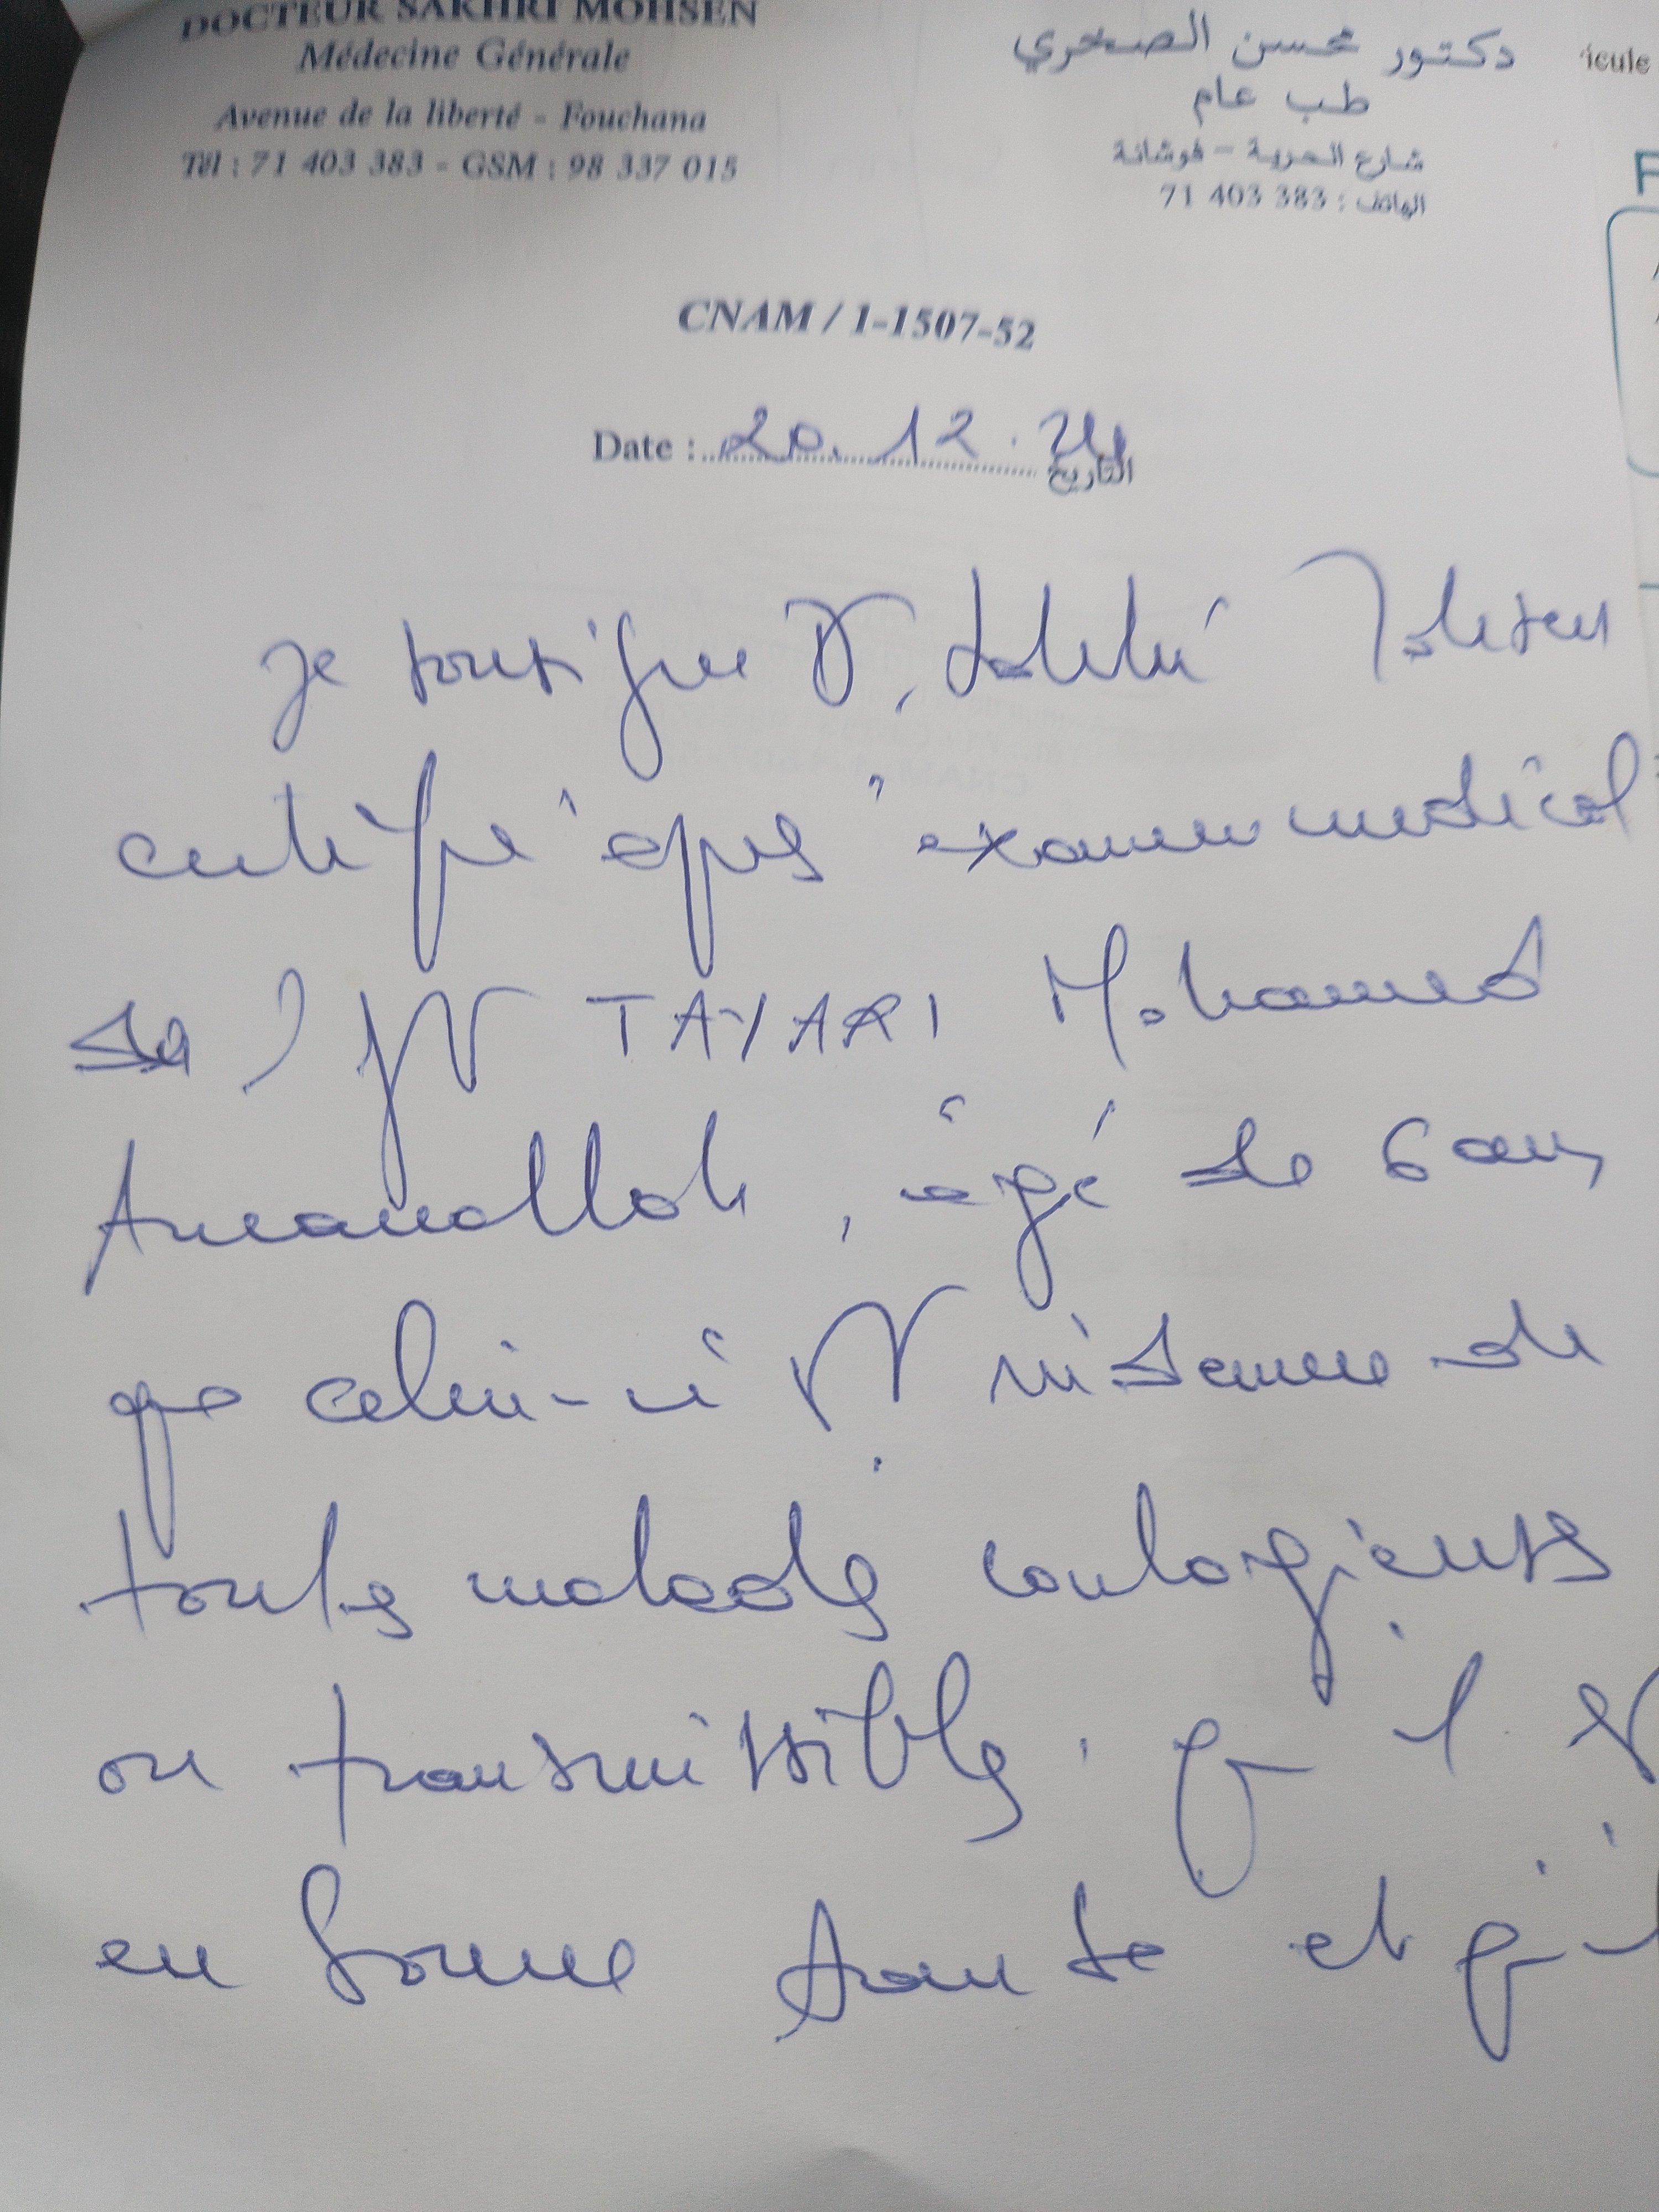 DOCTEUR SAKHRI MOHSEN
Médecine Générale
Avenue de la liberté - Fouchana
Tél : 71 403 383 - GSM : 98 337 015
دكتور محسن الصخري
طب عام
شارع الحرية - فوشانة
الهاتف : 71 403 383
icule
CNAM / 1-1507-52
Date : 20.12.24 التاريخ
Je soussigné Dr, Sakhri Mohsen
certifie après examen médical
de TAYARI Mohamed
Amanallah, âgé de 6 ans
que celui-ci est indemne de
toutes maladies contagieuses
ou transmissibles, qu'il est
en bonne santé et qu'il